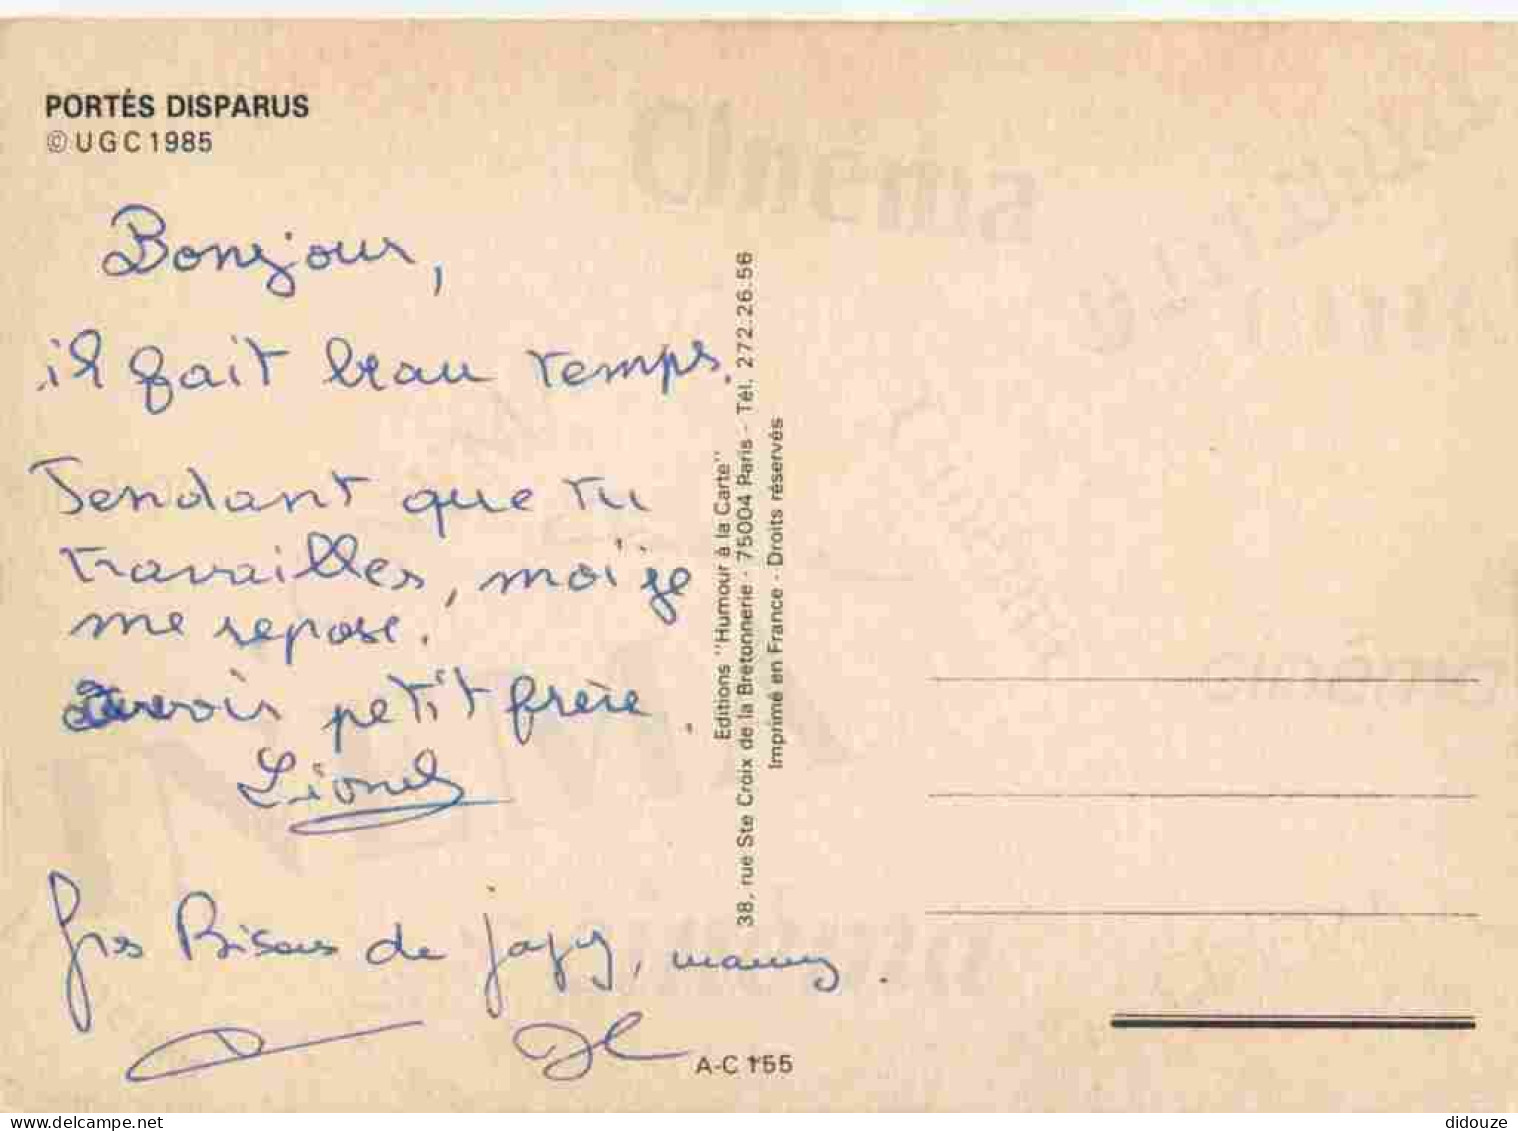 PORTÉS DISPARUS
© UGC 1985
Bonjour,
il fait beau temps.
Pendant que tu
travailles, moi je
me repose.
avoir petit frère.
Lionel
Gros Bisous de papy, mamy.
Editions "Humour à la Carte"
38, rue Ste Croix de la Bretonnerie - 75004 Paris - Tél. 272.26.56
Imprimé en France - Droits réservés
A-C 155
Cinéma
didouze